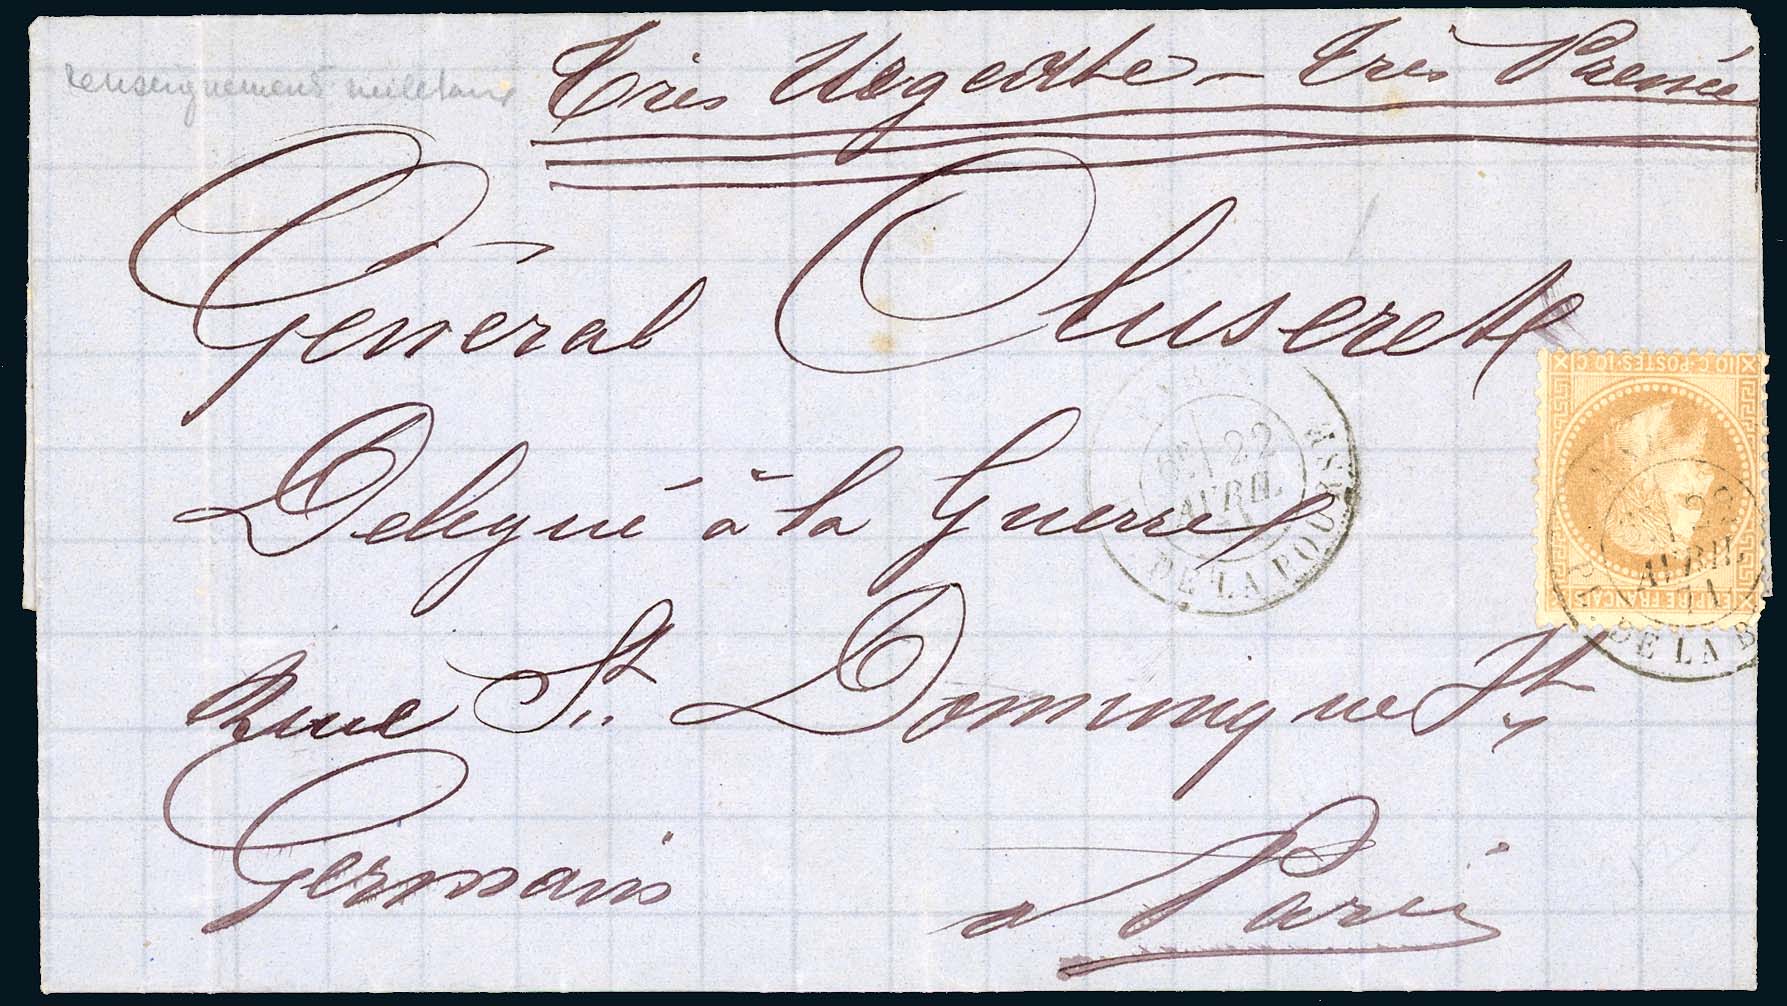 renseignement militaire
Très Urgente - très Pressée
Général Cluseret
Délégué à la Guerre
Rue St. Dominique St
Germain
a Paris
PARIS
6E 22
AVRIL
71
PL. DE LA BOURSE
10 C. POSTES 10 C
EMPIRE FRANÇAIS
PARIS
22
AVRIL
71
PL. DE LA B